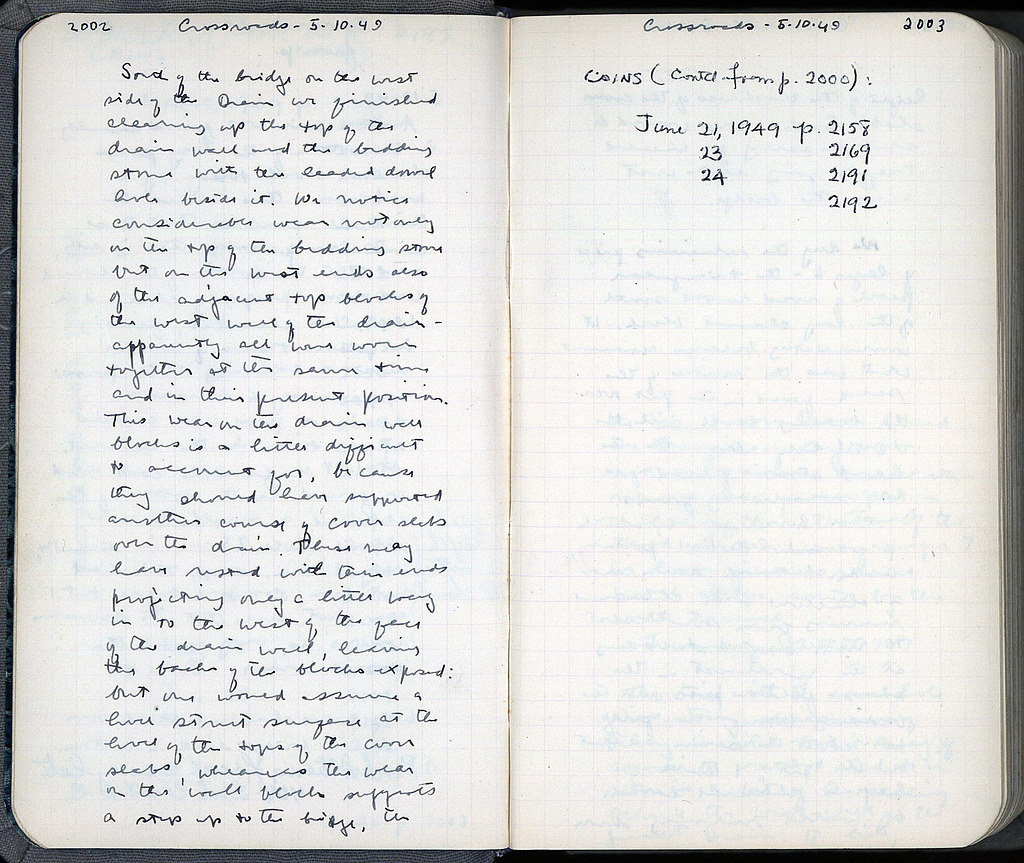 2002 Crossroads - 5.10.49
South of the bridge on the west
side of the Drain we finished
cleaning up the top of the
drain wall and the bedding
stone with the leaded dowel
hole beside it. We notice
considerable wear not only
on the top of the bedding stone
but on the west ends also
of the adjacent top blocks of
the west wall of the drain -
apparently all were worn
together at the same time
and in their present position.
This wear on the drain wall
blocks is a little difficult
to account for, because
they should have supported
another course of cover slabs
over the drain. These may
have rested with their ends
projecting only a little way
in to the west of the face
of the drain wall, leaving
the backs of the blocks exposed:
but one would assume a
level street surface at the
level of the tops of the cover
slabs, whereas the wear
on the wall blocks suggests
a step up to the bridge, the
Crossroads - 5.10.49 2003
COINS (Contd from p. 2000):
June 21, 1949 p. 2158
23 2169
24 2191
2192